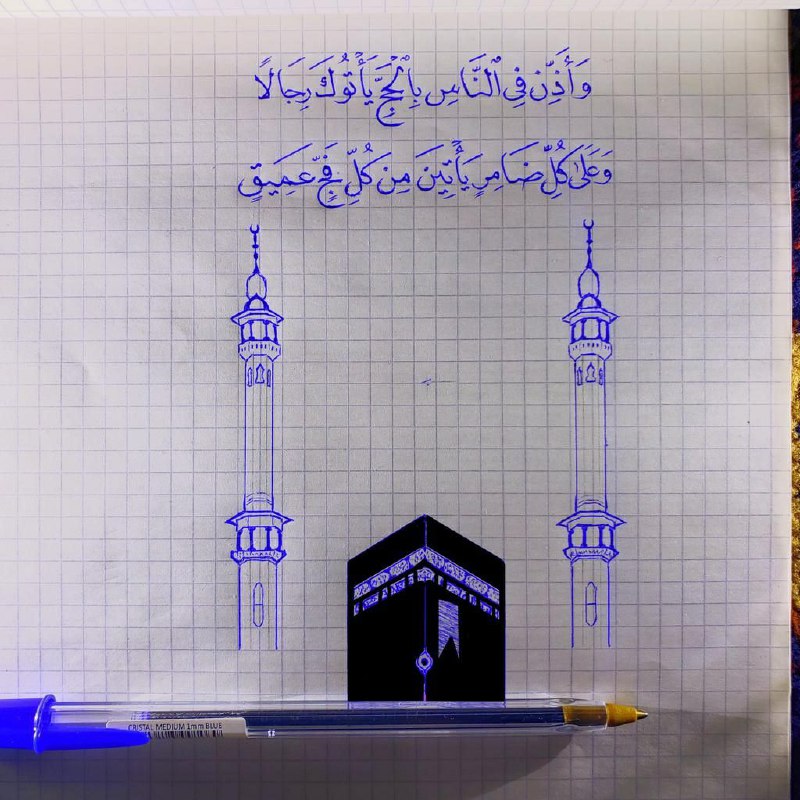 وَأَذِّن فِي ٱلنَّاسِ بِٱلْحَجِّ يَأْتُوكَ رِجَالًا
وَعَلَىٰ كُلِّ ضَامِرٍ يَأْتِينَ مِن كُلِّ فَجٍّ عَمِيقٍ
CRISTAL MEDIUM 1mm BLUE